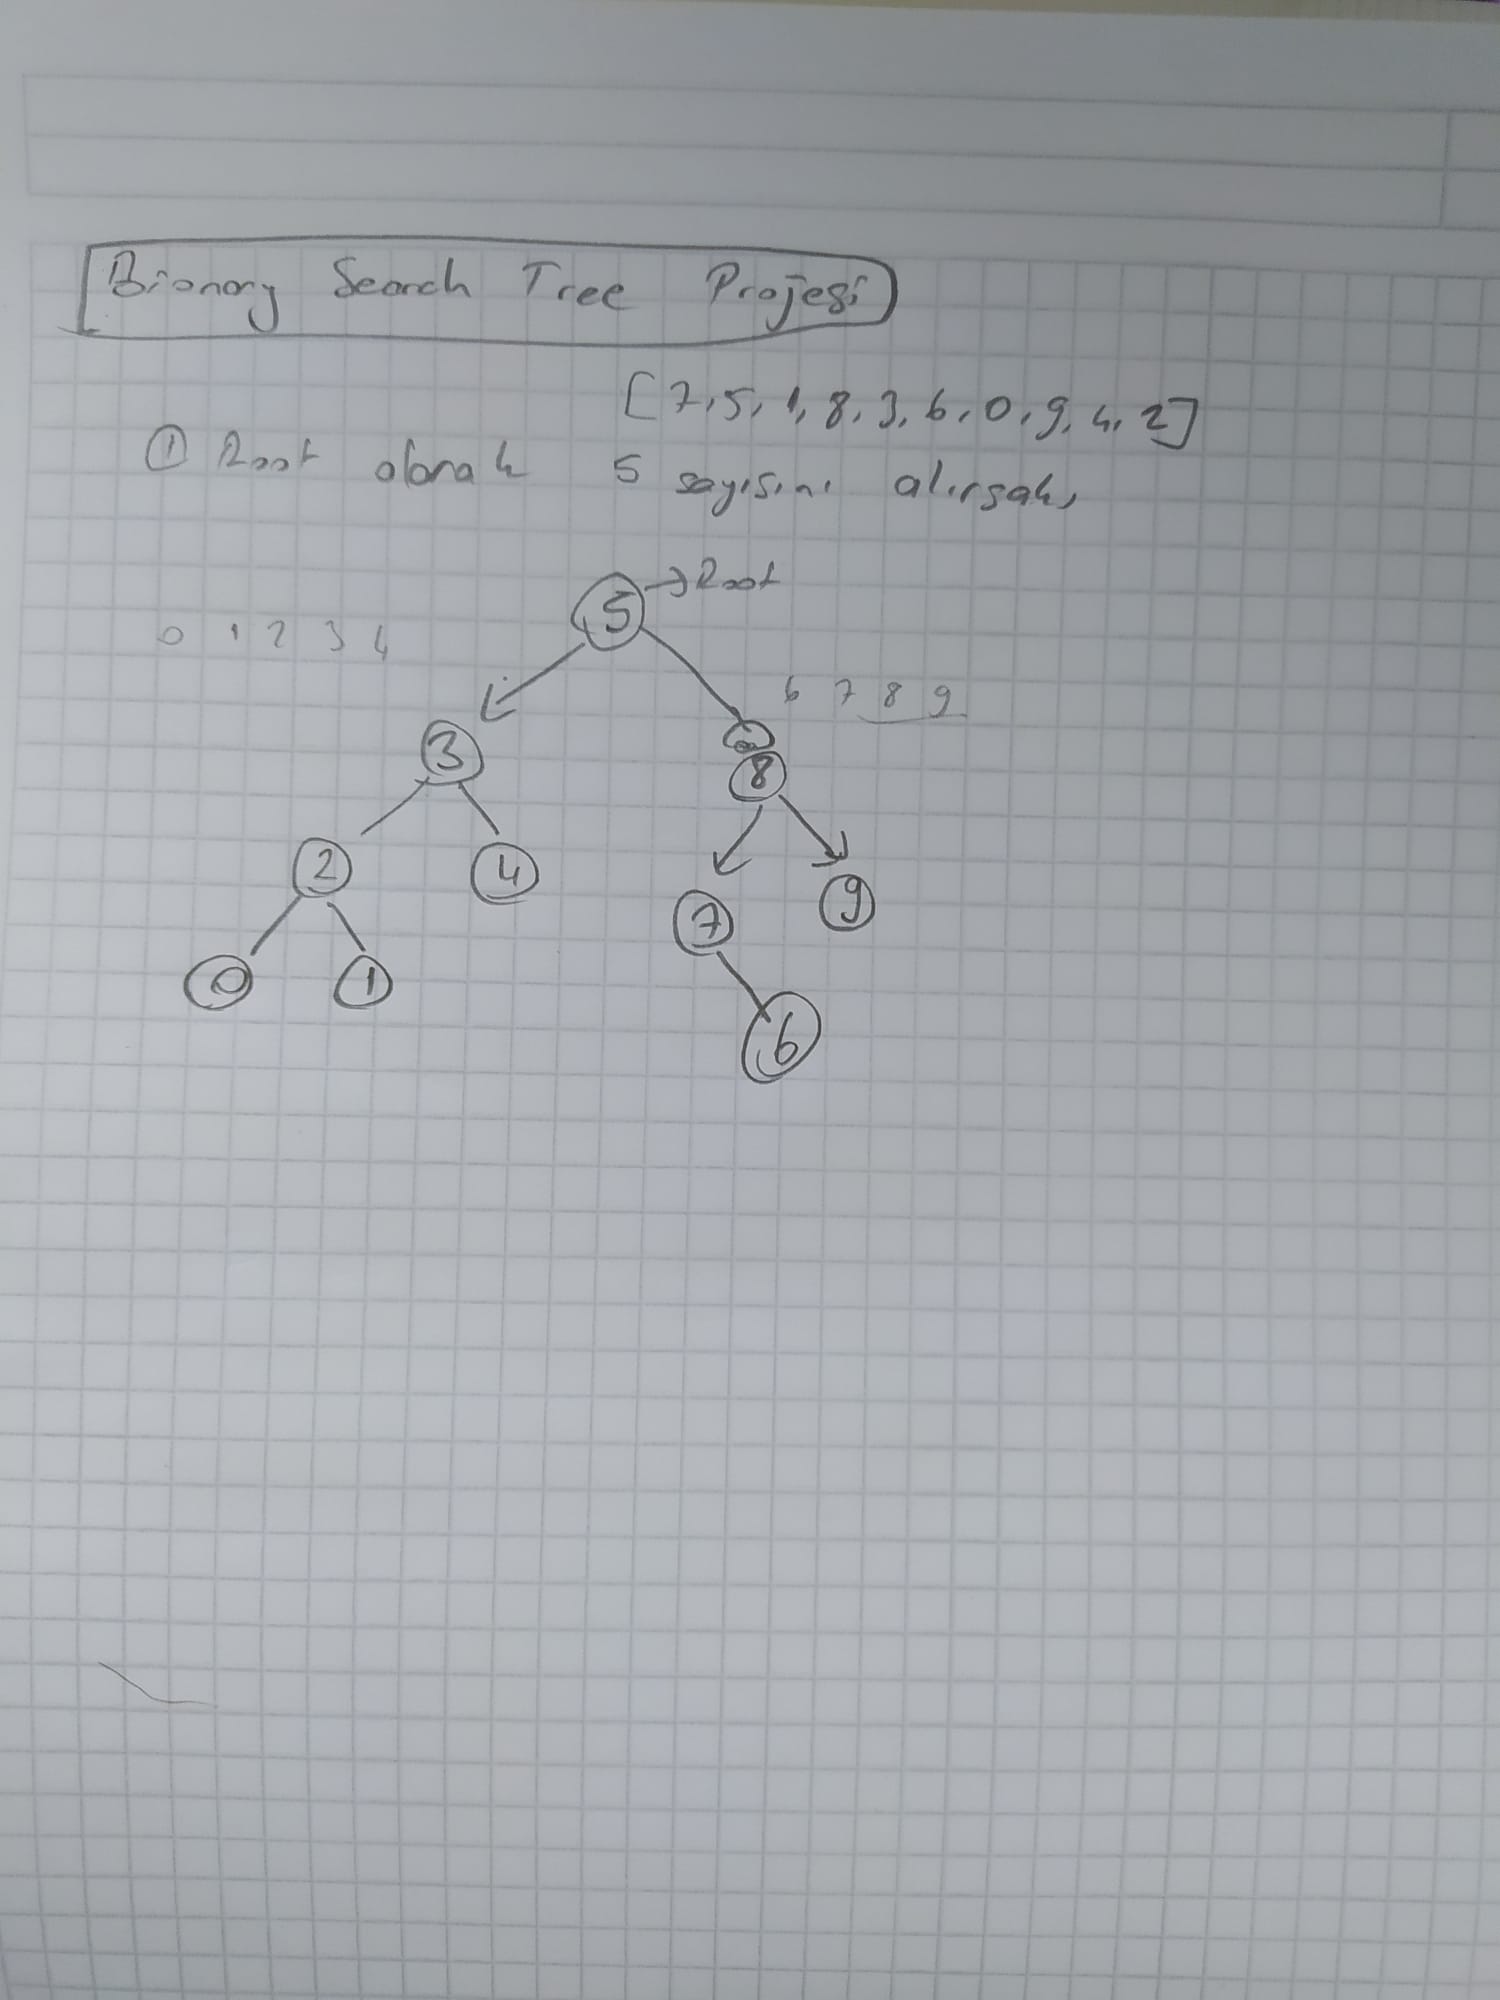 Bionary Search Tree Projesi
[7,5,1,8,3,6,0,9,4,2]
① Root olarak 5 sayısını alırsak,
5 → Root
0 1 2 3 4
6 7 8 9
3
8
2 4
7 9
0 1
6